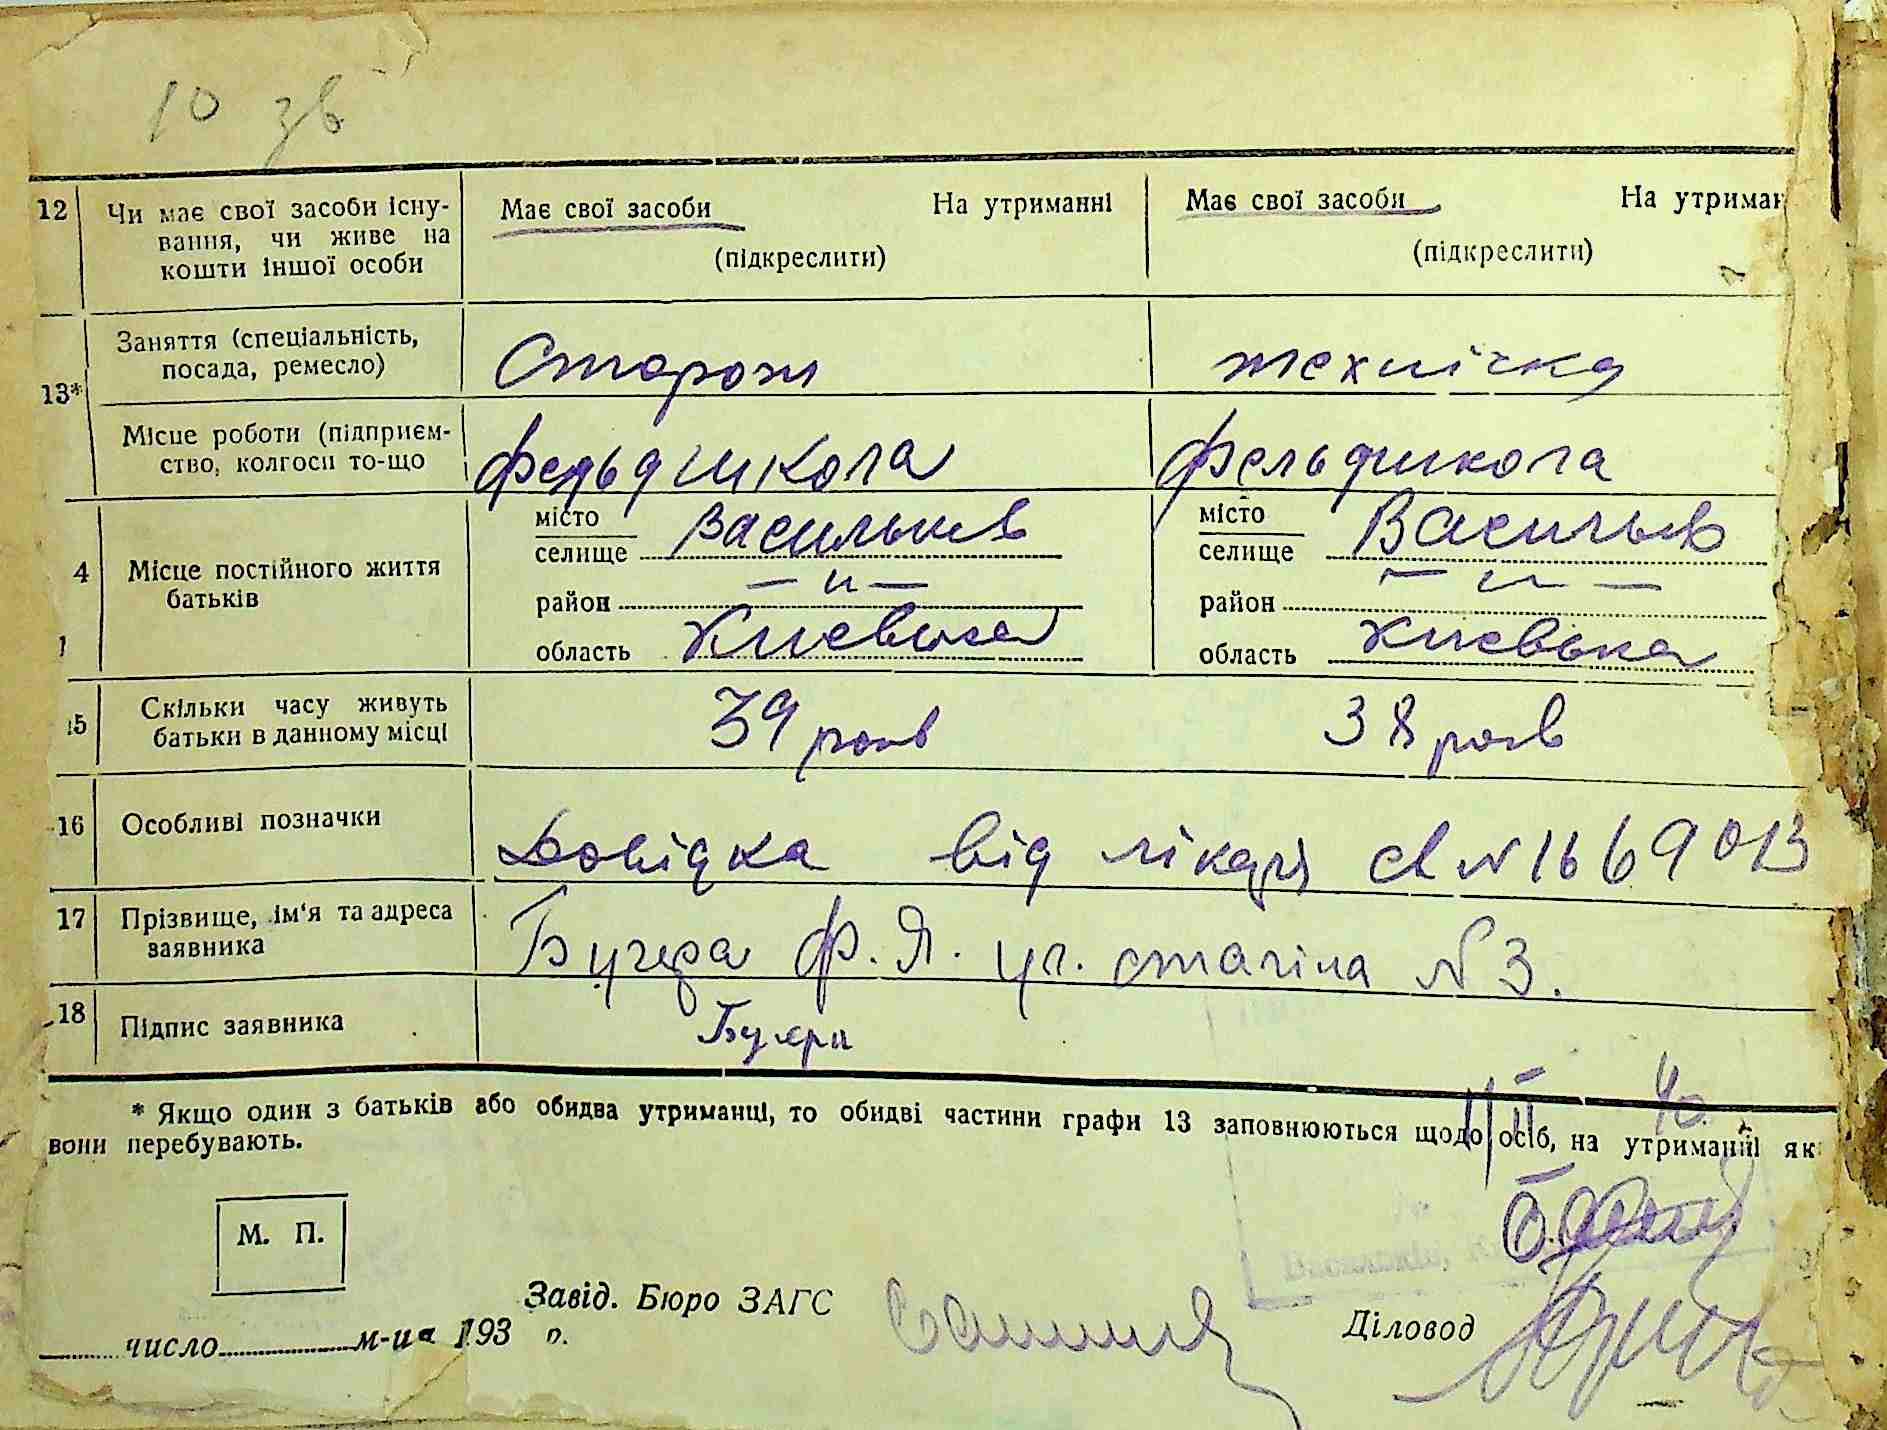 10 зв
12 Чи має свої засоби існу- Має свої засоби На утриманні Має свої засоби На утриман
вання, чи живе на
кошти іншої особи (підкреслити) (підкреслити)
13* Заняття (спеціальність, Сторож технічка
посада, ремесло)
Місце роботи (підприєм- фельдшкола фельдшкола
ство, колгосп то-що
4 Місце постійного життя місто Васильків місто Васильків
батьків селище селище
район — и — район — и —
1 область Киевька область Киевька
15 Скільки часу живуть 39 років 38 років
батьки в данному місці
16 Особливі позначки Довідка від лікаря № 1669013
17 Прізвище, ім'я та адреса Бугера Ф. Я. ул. сталіна № 3.
заявника
18 Підпис заявника Бугера
* Якщо один з батьків або обидва утриманці, то обидві частини графи 13 заповнюються щодо осіб, на утриманні як
вони перебувають.
11/II 40
М. П.
Завід. Бюро ЗАГС
Діловод
число м-ця 193 р.